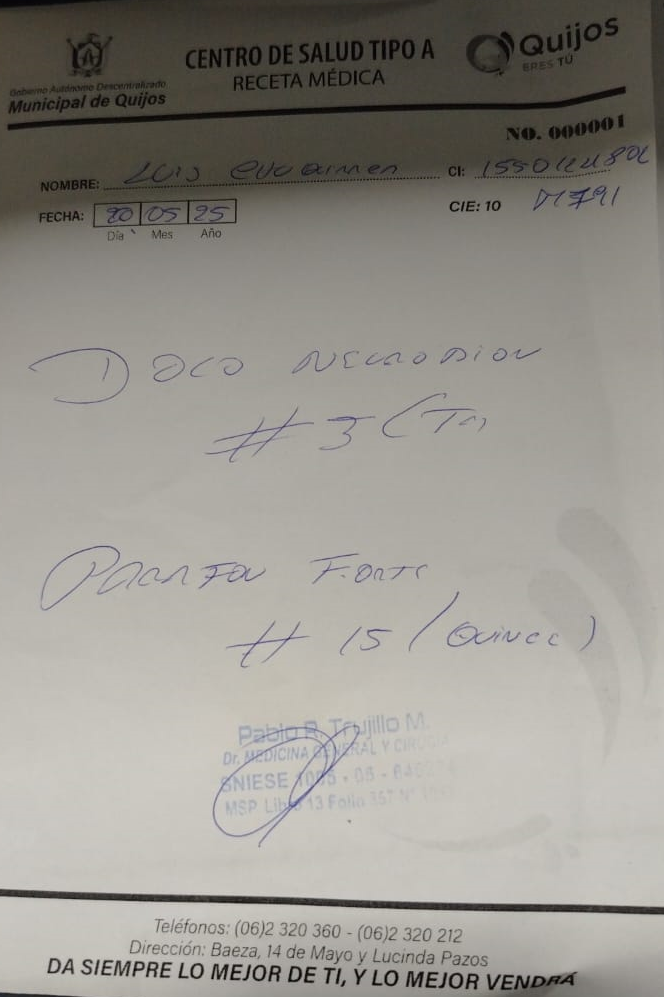 Gobierno Autónomo Descentralizado
Municipal de Quijos
CENTRO DE SALUD TIPO A
RECETA MÉDICA
Quijos
ERES TÚ
NO. 000001
NOMBRE: Luis CI:
FECHA: 20 05 25 CIE: 10 M791
Día Mes Año
1) DOLO NEUROBION
# 3 (
PARAFON FORTE
# 15 (QUINCE)
Pablo R. Trujillo M.
Dr. MEDICINA GENERAL Y CIRUGÍA
SNIESE
MSP Libro 13 Folio 357 N°
Teléfonos: (06)2 320 360 - (06)2 320 212
Dirección: Baeza, 14 de Mayo y Lucinda Pazos
DA SIEMPRE LO MEJOR DE TI, Y LO MEJOR VENDRÁ